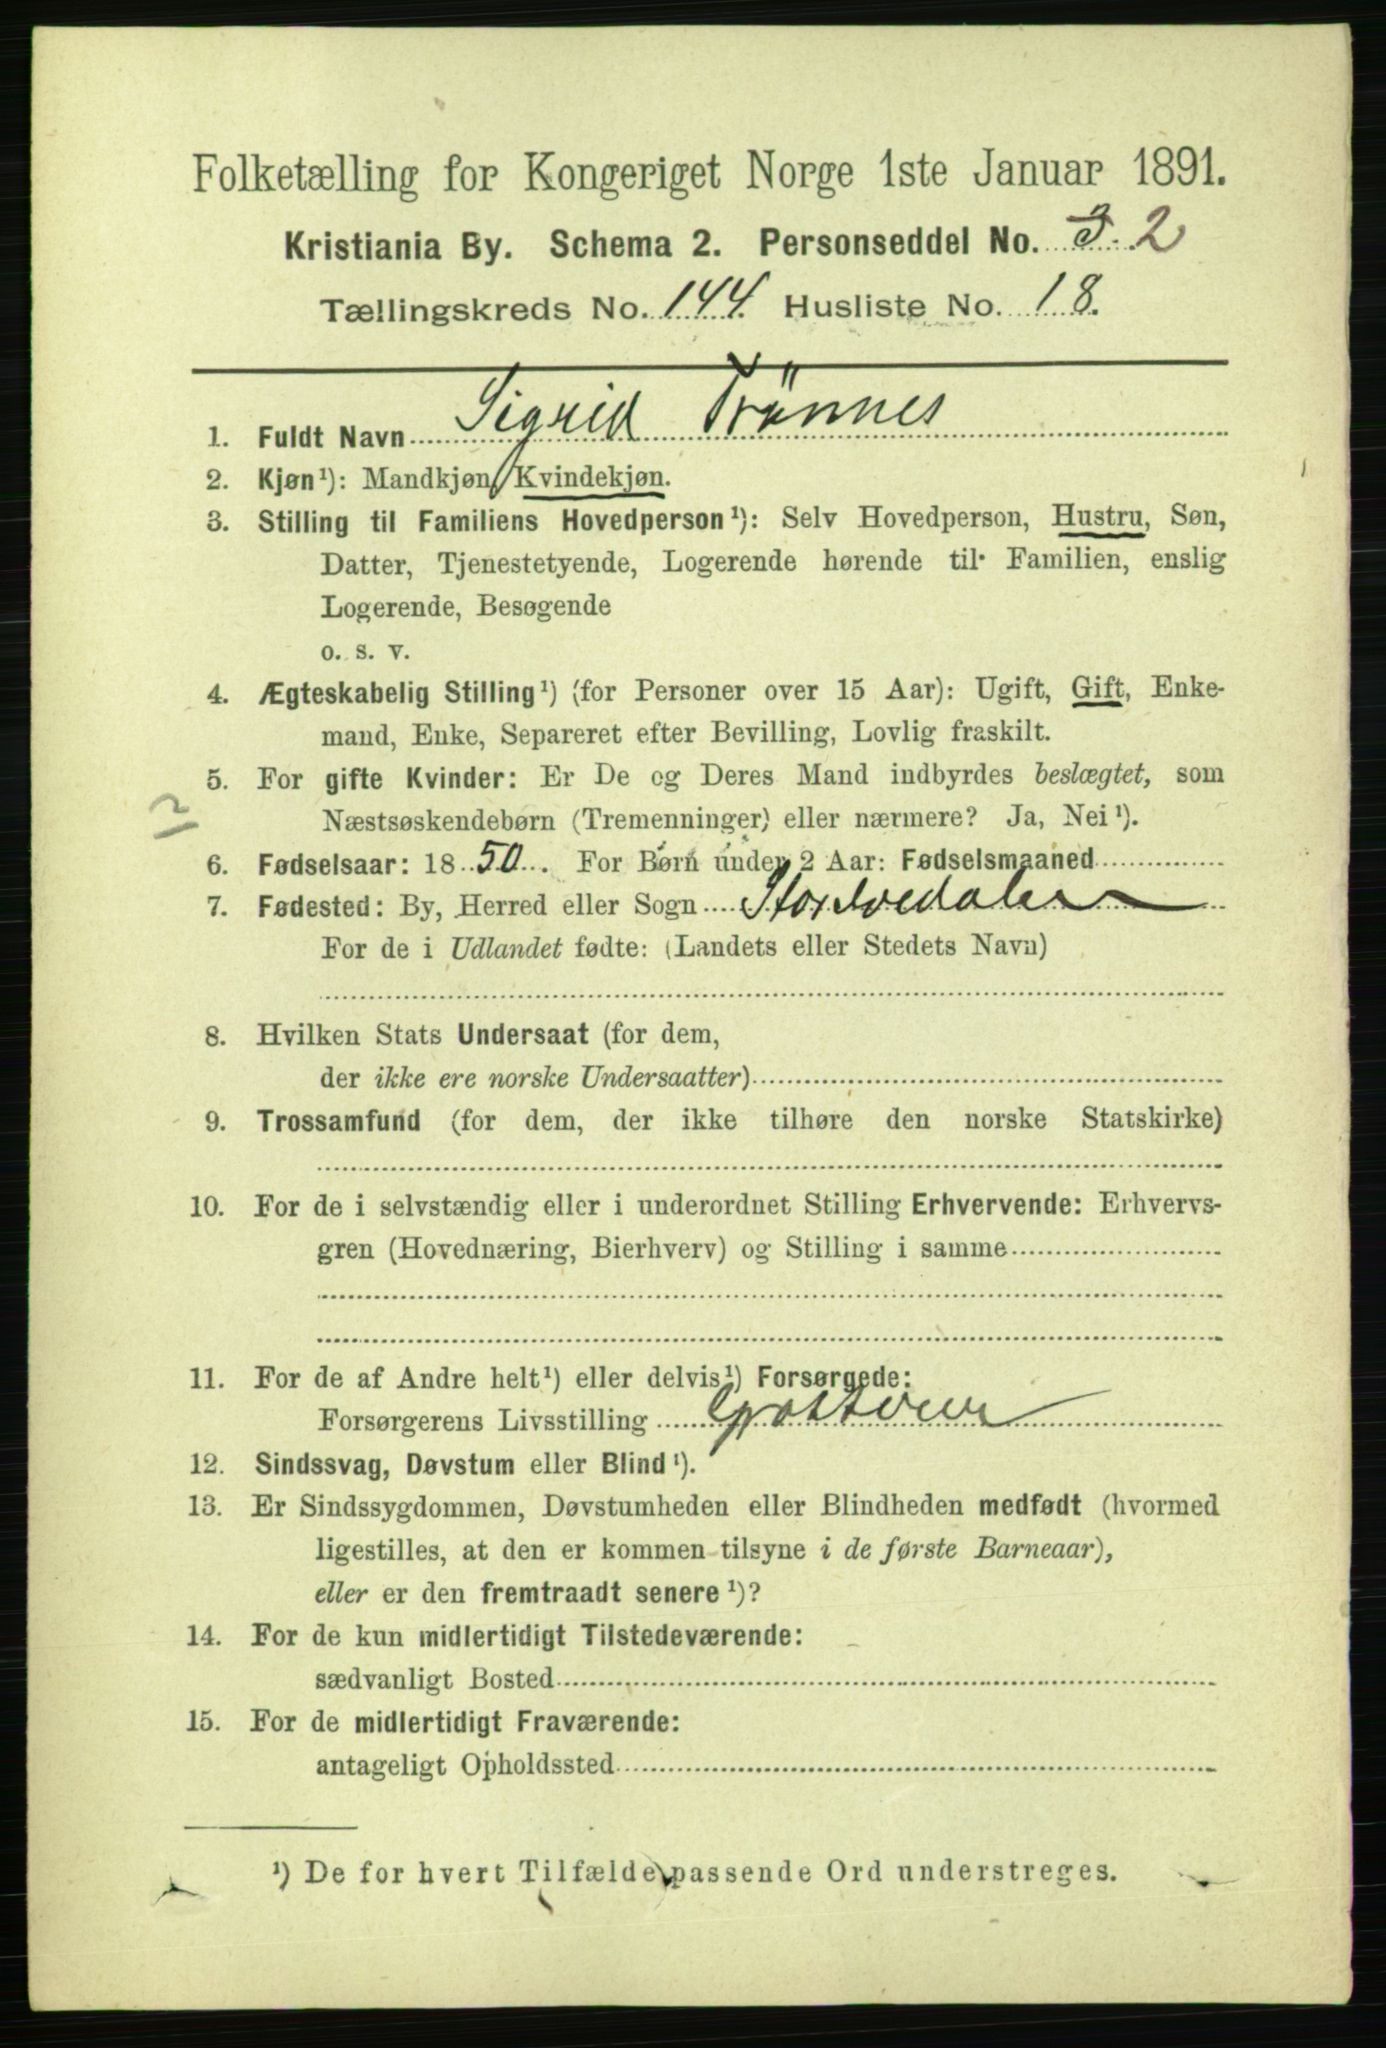 Folketælling for Kongeriget Norge 1ste Januar 1891.
Kristiania By. Schema 2. Personseddel No. 3. 2
Tællingskreds No. 144. Husliste No. 18.
1. Fuldt Navn Sigrid Trönnes
2. Kjøn¹): Mandkjøn, Kvindekjøn.
3. Stilling til Familiens Hovedperson¹): Selv Hovedperson, Hustru, Søn,
Datter, Tjenestetyende, Logerende hørende til Familien, enslig
Logerende, Besøgende
o. s. v.
4. Ægteskabelig Stilling¹) (for Personer over 15 Aar): Ugift, Gift, Enke-
mand, Enke, Separeret efter Bevilling, Lovlig fraskilt.
5. For gifte Kvinder: Er De og Deres Mand indbyrdes beslægtet, som
Næstsøskendebørn (Tremenninger) eller nærmere? Ja, Nei¹).
6. Fødselsaar: 1850. For Børn under 2 Aar: Fødselsmaaned
7. Fødested: By, Herred eller Sogn
For de i Udlandet fødte: (Landets eller Stedets Navn)
8. Hvilken Stats Undersaat (for dem,
der ikke ere norske Undersaatter)
9. Trossamfund (for dem, der ikke tilhøre den norske Statskirke)
10. For de i selvstændig eller i underordnet Stilling Erhvervende: Erhvervs-
gren (Hovednæring, Bierhverv) og Stilling i samme
11. For de af Andre helt¹) eller delvis¹) Forsørgede:
Forsørgerens Livsstilling
12. Sindssvag, Døvstum eller Blind¹).
13. Er Sindssygdommen, Døvstumheden eller Blindheden medfødt (hvormed
ligestilles, at den er kommen tilsyne i de første Barneaar),
eller er den fremtraadt senere¹)?
14. For de kun midlertidigt Tilstedeværende:
sædvanligt Bosted
15. For de midlertidigt Fraværende:
antageligt Opholdssted
¹) De for hvert Tilfælde passende Ord understreges.